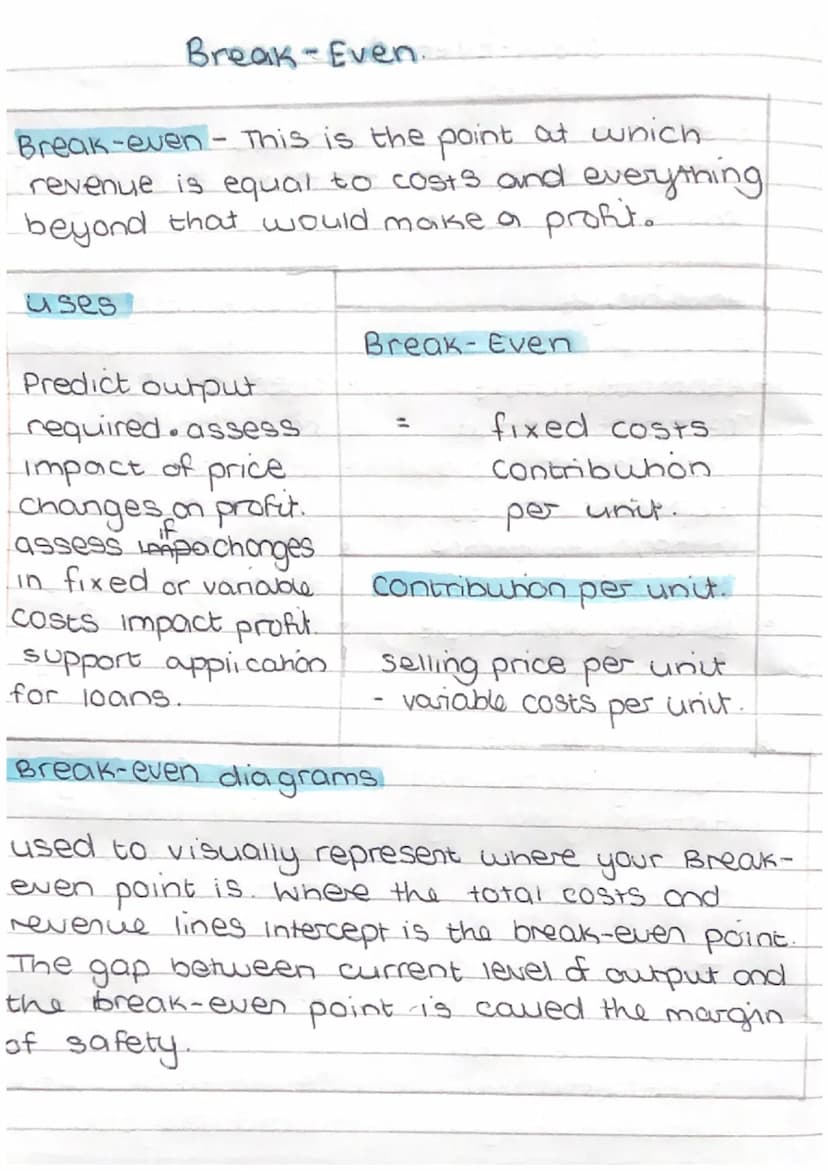 Break-Even.
Break-even - This is the point at which
revenue is equal to costs and everything
beyond that would make a profit.
uses
Predict output
required. assess
impact of price
changes on profit.
if
assess changes
in fixed or variable
costs impact profit.
support application
for loans.
Break-Even
= fixed costs
contribution
per unit.
contribution per unit.
selling price per unit
- variable costs per unit.
Break-even diagrams
used to visually represent where your Break-
even point is. Where the total costs and
revenue lines intercept is the break-even point.
The gap between current level of output and
the break-even point is called the margin
of safety.